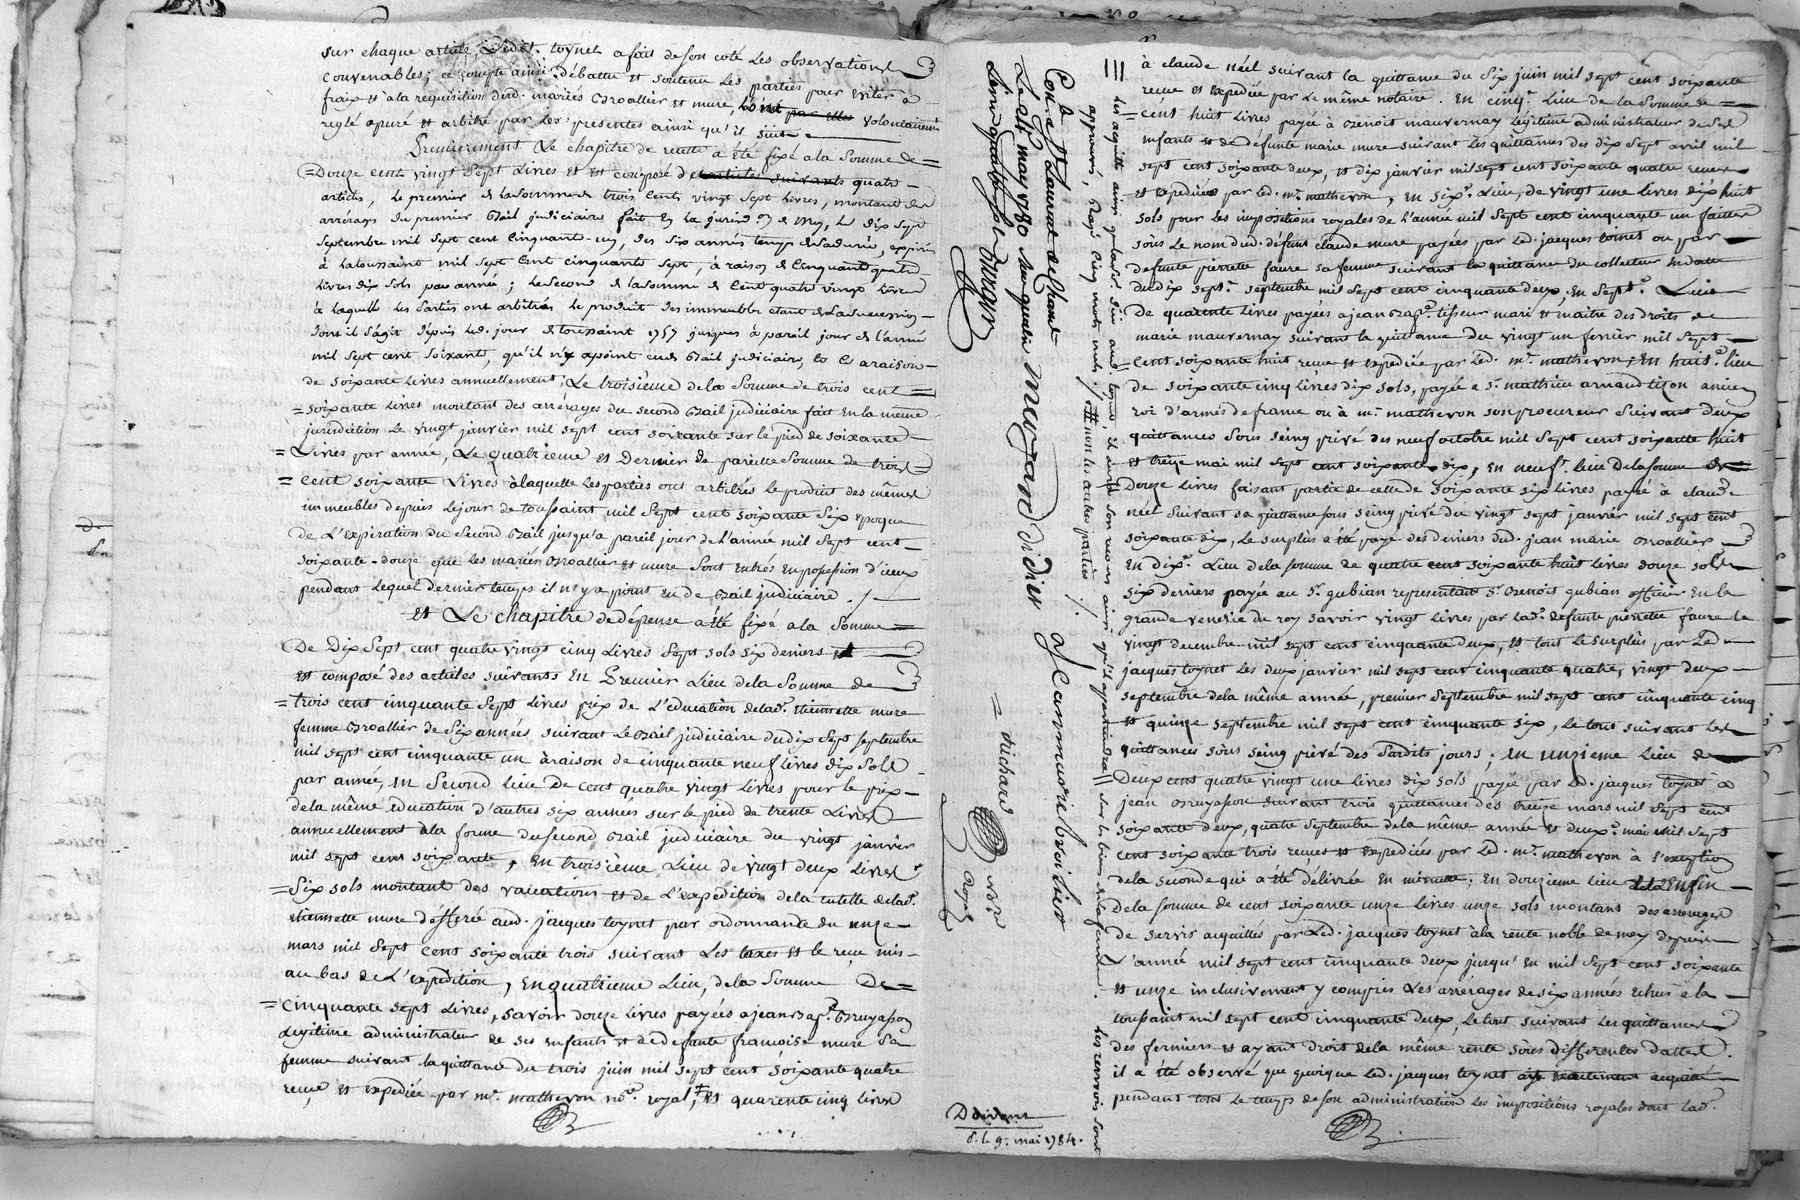 sur chaque article, Ledit. toynet a fait de son coté les observations
convenables; ce compte ainsi débattu et soutenu les parties pour eviter à
fraix et à la requisition dud. mariés Broallier et mure, volontairemt
reglé apuré et arbitré par les presentes ainsi qu'il suit
Premierement Le chapitre de recette a été fixé a la Somme de
Douze cent vingt Sept Livres et est composé de articles suivants quatre
articles, le premier de la somme de trois cents vingt Sept Livres, montant des
arrérages du premier Bail judiciaire fait en la jurid.on de le dix Sept
Septembre mil Sept cent Cinquante-un, des Six années temps de sa durée, expirés
à la toussaint mil Sept Cent Cinquante Sept, à raison de Cinquante quatre
Livres dix Sols par année; le Second de la somme de Cent quatre vingt Livres
à laquelle les Parties ont arbitrés le produit des immeubles etant de la succession
dont il s'agit depuis led. jour de toussaint 1757 jusques à pareil jour de l'année
mil Sept cent Soixante, qu'il n'y a point eu de Bail judiciaire, a raison
de Soixante Livres annuellement; Le troisieme de la Somme de trois cent
soixante Livres montant des arrérages du second Bail judiciaire fait En la même
jurisdiction Le vingt janvier mil Sept cent soixante sur le pied de soixante
Livres par année, Le quatrieme et Dernier de pareille Somme de trois
Cent soixante Livres à laquelle les parties ont arbitrés le produit des mêmes
immeubles depuis le jour de toussaint mil Sept cent soixante Six epoque
de L'Expiration du Second Bail jusqu'a pareil jour de l'année mil Sept cent
soixante-douze que les mariés Broallier et mure Sont Entrés En possession d'iceux
pendant lequel dernier temps il n'y a point Eu de Bail judiciaire ./
Et Le chapitre de dépense a été fixé a la Somme
De Dix Sept cent quatre vingt cinq Livres Sept sols six deniers et
est composé des articles suivants En Premier Lieu de la Somme de
trois cent cinquante Sept Livres prix de L'education de lad.e etiennette mure
femme Broallier de Six années suivant le Bail judiciaire du dix Sept Septembre
mil Sept cent cinquante un à raison de cinquante neuf Livres dix Sols
par année, en Second lieu De cent quatre vingt Livres pour le prix
de la même Education d'autres six années sur le pied de trente Livres
annuellement à la forme du second Bail judiciaire du vingt janvier
mil Sept cent Soixante, en troisième Lieu de vingt deux Livres
Six sols montant des vacations et de L'expedition de la tutelle de lad.e
etiennette mure déférée aud. jacques toynet par ordonnance du onze
mars mil Sept cent soixante trois suivant les taxes et le reçu mis
au bas de L'expedition, en quatrieme Lieu, de la Somme De
cinquante Sept Livres, savoir douze Livres payées a jean Bap.te Bruyasson
Legitime administrateur de ses Enfants et de defunte francoise mure Sa
femme suivant la quittance du trois juin mil Sept cent Soixante quatre
reçue et Expediée par m.e mathevon no.re royal, et quarente cinq Livres
Con.e St Laurent de Chamt
Le dit may 1780
Mourand didier
Jeanmarie broalier
michaud
no.re royal
D dernr
C. le 9. mai 1784.
les acquits ainsi
approuvés, Rayé Cinq mots nuls ./. non les autres parties ./.
les renvois sont
à claude néel suivant la quittance du Six juin mil Sept cent soixante
reçue et Expediée par Le même notaire. En cinq.e Lieu de la Somme de
cent huit Livres payée à Benoit mauvernay Legitime administrateur de Ses
Enfants et de défunte marie mure suivant les quittances des dix Sept avril mil
Sept cent soixante deux, et dix janvier mil sept cent soixante quatre reçues
et Expediées par led. m.e mathevon, en six.e Lieu, de vingt une Livres dix huit
Sols pour Les impositions royales de l'année mil Sept cent cinquante un faittes
sous Le nom dud. défunt claude mure payées par led. jacques toinet ou par
defunte pierrette faure sa femme suivant la quittance du collecteur En datte
du dix sept.e Septembre mil Sept cent cinquante deux, En Sept.e Lieu
De quarente Livres payées a jean Bap.te tisseur mari et maitre des droits de
marie mauvernay suivant la quittance du vingt un fevrier mil Sept
cent soixante huit reçue et expediée par led. m.e mathevon; En huit.e lieu
de soixante cinq Livres dix sols, payée a S.r mathieu arnaud tizon ancien
roi d'armes de france ou à m.e mathevon son procureur Suivant deux
quittances Sous Seing privé des neuf octobre mil Sept cent soixante huit
et treize mai mil Sept cent soixante dix, En neuf.e lieu De la somme de
Douze Livres faisant partie de celle de Soixante six Livres payée à claude
néel Suivant sa quittance sous seing privé du vingt sept janvier mil sept cent
soixante dix, Le surplus a été payé des deniers dud. jean marie Broallier
En dix.e Lieu de la somme de quatre cent soixante huit Livres douze sols
six deniers payée au S.r gubian representant S.r Benoit gubian officier En la
grande venerie du roy savoir vingt Livres par lad.e defunte pierrette faure le
vingt decembre mil sept cent cinquante deux, et tout le surplus par led.
jacques toynet les deux janvier mil sept cent cinquante quatre, vingt deux
septembre de la même année, premier Septembre mil Sept cent cinquante cinq
et quinze septembre mil sept cent cinquante six, Le tout suivant les
quittances sous seing privé des Sardits jours; En unzieme Lieu de
Deux cent quatre vingt une Livres dix sols payé par led. jacques toynet à
jean Bruyasson suivant trois quittances des treize mars mil sept cent
soixante deux, quatre septembre de la même année et deux.e mai mil Sept
cent soixante trois reçues et expediées par led. m.e mathevon à l'exception
de la seconde qui a été délivrée En minutte; En douzieme lieu Enfin
De la somme de cent soixante unze Livres unze sols montant des arrerages
de servis acquittés par led. jacques toynet à la rente noble de mey depuis
L'année mil sept cent cinquante deux jusqu'En mil sept cent soixante
et unze inclusivement y compris Les arrerages de six années Echus a la
toussaint mil sept cent cinquante deux, le tout suivant les quittances
des fermiers et ayant droit de la même rente sous differentes dattes.
il a été observé que quoique led. jacques toynet ait exactement acquitté
pendant tout le temps de son administration les impositions royales dont lad.e